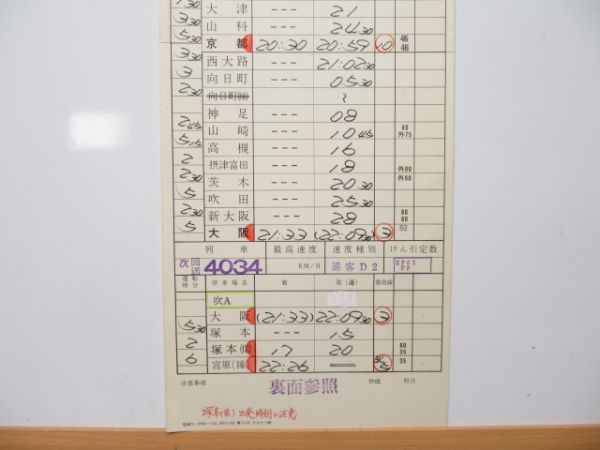 330 大津 --- 21
530 山科 --- 2430
330 京都 20:30 20:59 10 46 46
3 西大路 --- 21:0230
230 向日町 --- 0530
向日町(操)
神足 --- 08
245 山崎 --- 1045 80 外75
515 高槻 --- 16
2 摂津富田 --- 18 外90
230 茨木 --- 2030 外80
5 吹田 --- 2530
230 新大阪 --- 28 80 80
5 大阪 21:33 (22:0930) 3 50
列車 最高速度 速度種別 けん引定数
回送 4034 KM/H 通客D2 EF65 PF
運転時分 停車場名 着 発(通) 着発線
吹A
大阪 (21:33) 22:0930 3
530 塚本 --- 15
2 塚本(信) 17 20 60 35
6 宮原(操) 22:26 = 35
注意事項 裏面参照 作成 照合
塚本(信)出発時刻に注意